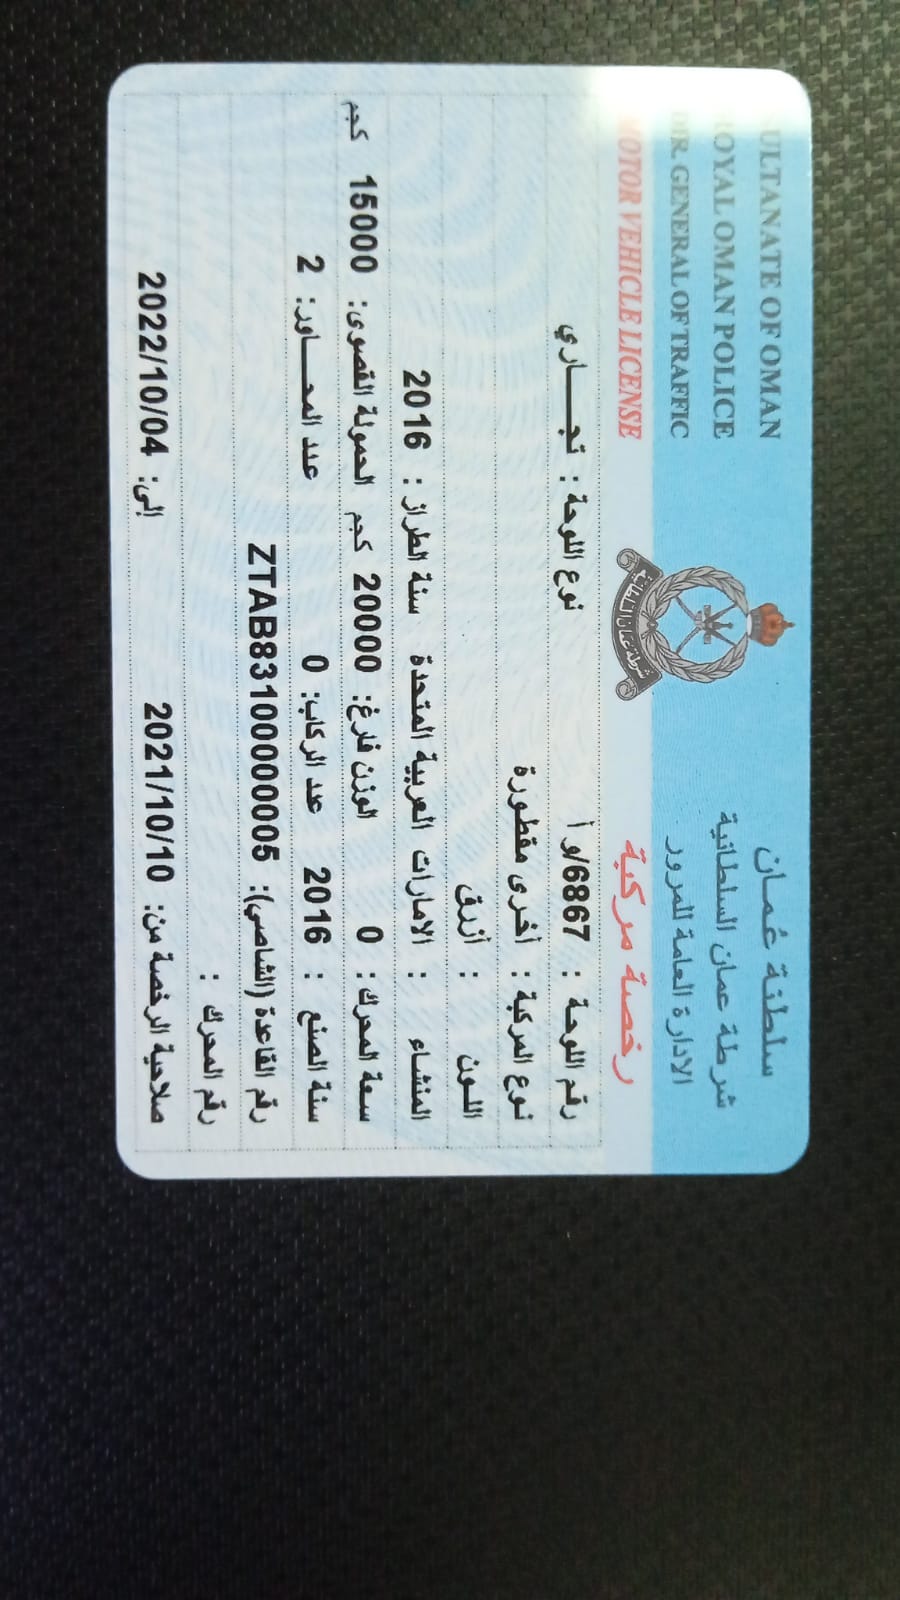 سلطنة عُمان
شرطة عمان السلطانية
الادارة العامة للمرور
رخصة مركبة
شرطة عمان السلطانية
SULTANATE OF OMAN
ROYAL OMAN POLICE
DIR. GENERAL OF TRAFFIC
MOTOR VEHICLE LICENSE
رقم اللوحة : 6867/و أ نوع اللوحة : تجـــاري
نوع المركبة : أخرى مقطورة
اللـون : أزرق
المنشاء : الامارات العربية المتحدة سنة الطراز : 2016
سعة المحرك: 0 الوزن فارغ: 20000 كجم الحمولة القصوى: 15000 كجم
سنة الصنع : 2016 عدد الركاب: 0 عدد المحـــاور: 2
رقم القاعدة (الشاصي): ZTAB8310000005
رقم المحرك :
صلاحية الرخصة من: 2021/10/10 إلى: 2022/10/04